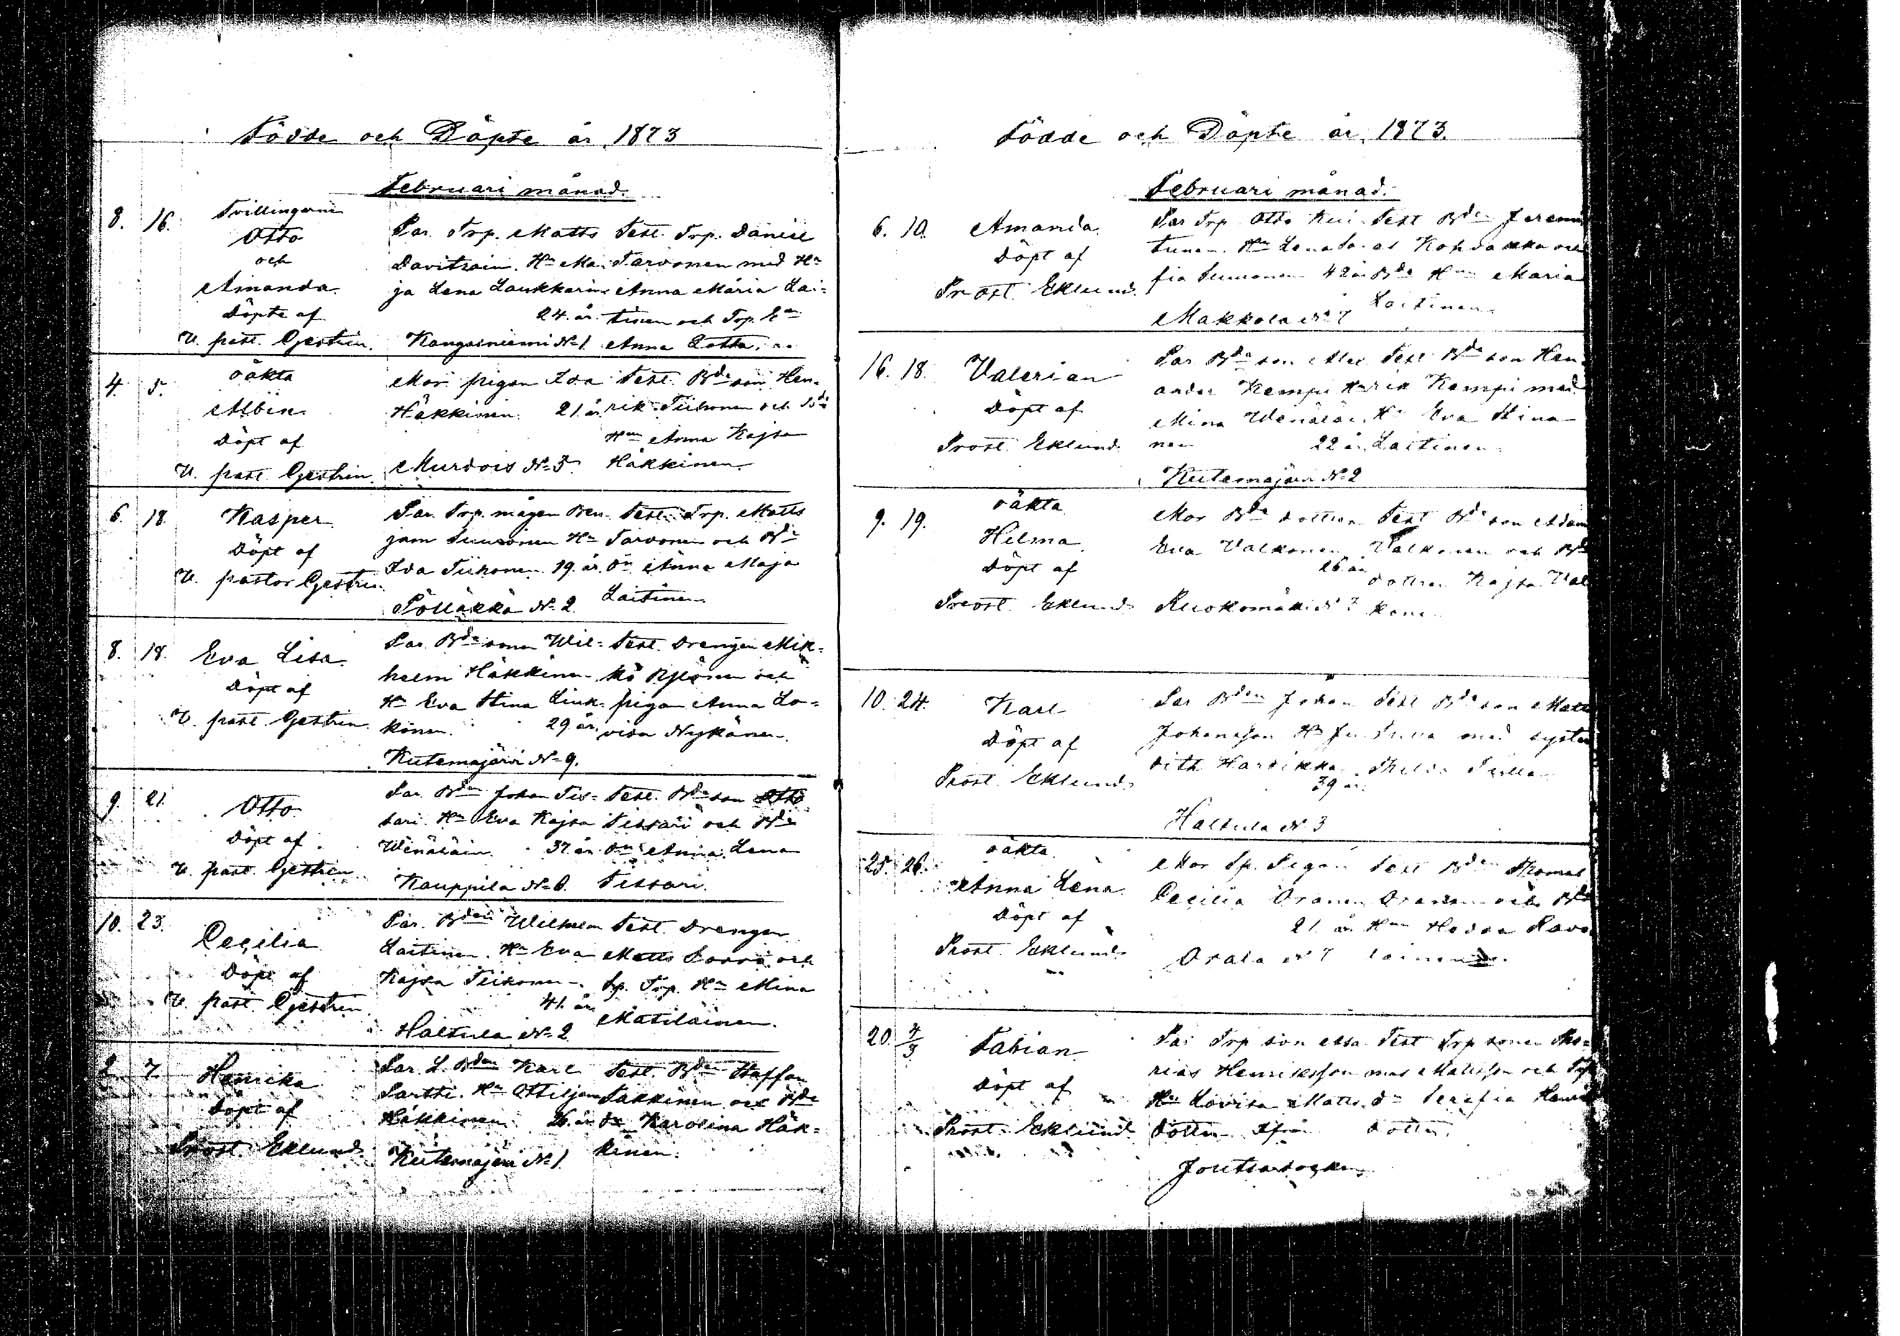 Födde och Döpte år 1873
Februari månad.
8. 16. Tvillingarne
Otto
och
Amanda
Döpte af
V. past. Gestrin.
Par. Trp. Matts
Davitsain. Hu Ma-
ja Lena Laukkarin
24 år
Kangasniemi No 1.
Test. Trp. Daniel
Tarvonen med Hu
Anna Maria Lai-
tinen och Trp. En
Anna Lotta
4. 5. oäkta
Albin
Döpt af
V. past. Gestrin.
Mor pigan Ida
Häkkinen 21 år
Murdois No 3
Test. Bde son Hen-
rik Tiihonen och Bde
Hun Anna Kajsa
Häkkinen
6. 18. Kasper
Döpt af
V. pastor Gestrin
Par. Trp. mågen Ben-
jam Suuronen Hu
Ida Tiihonen 19 år
Pölläkkä No 2
Test. Trp. Matts
Tarvonen och Bde
Dn Anna Maja
Laitinen
8. 18. Eva Lisa
Döpt af
V. past. Gestrin
Par. Bde sonen Wil-
helm Häkkinen
Hu Eva Stina Link-
könen 29 år
Kutemajärvi No 9.
Test. Drengen Mik-
ko Björnen och
pigan Anna Lo-
visa Nykänen.
9. 21. Otto
Döpt af
V. past. Gestrin
Par. Bden Johan Tis-
sari. Hu Eva Kajsa
Wenäläin 37 år
Kauppila No 6.
Test. Bde son Otto
Tissari och Bde
Dn Anna Lena
Tissari.
10. 23. Cecilia
Döpt af
V. past. Gestrin
Par. Bden Wilhelm
Laitinen. Hu Eva
Kajsa Tiihonen
41 år
Haltula No 2
Test. Drengen
Matts Sorri och
Sp. Trp. Hu Mina
Matilainen.
2. 7. Henrika
Döpt af
Prost. Eklund
Par. L. Bden Karl
Partti. Hu Ottiljana
Häkkinen 26 år
Kutemajärvi No 1.
Test. Bden Staffan
Sakkinen och Bde
dn Karolina Häk-
kinen.
Födde och Döpte år 1873.
Februari månad.
6. 10. Amanda
Döpt af
Prost. Eklund.
Par Trp. Otto Kui-
tunen. Hu Lena So-
fia Suuronen 42 år
Makkola No 7
Test Bden Jeremi-
as Kokkakka och
Bde Hun Maria
Laitinen
16. 18. Valerian
Döpt af
Prost. Eklund
Par Bde son Alex-
ander Kempi Hu
Mina Wenäläi-
nen 22 år
Kutemajärvi No 2
Test Bde son Hen-
rik Kempi med
Hu Eva Stina
Laitinen
9. 19. oäkta
Hilma
Döpt af
Prost. Eklund
Mor Bde dottren
Eva Valkonen
26 år
Ruokomäki No 3
Test Bde son Adam
Valkonen och Bde
dottren Kajsa Val-
kone
10. 24. Karl
Döpt af
Prost. Eklund
Par Bden Johan
Johansson Hu Ju-
dith Harvikka
39 år
Haltula No 3
Test Bde son Matts
med syster
25. 26. oäkta
Anna Lena
Döpt af
Prost. Eklund
Mor Sp. Pigan
Cecilia Oranen
21 år
Orala No 7
Test Bden Thomas
Oranen och Bde
Hun Hedda Pavo-
lainen
20. 4/3 Fabian
Döpt af
Prost. Eklund
Par Trp son Essa-
rias Henriksson
Hu Lovisa Matts-
dotter ifrån
Joutsa socken
Test Trp sonen Tho-
mas Matsson och Trp
dn Serafia Henriks-
dotter.